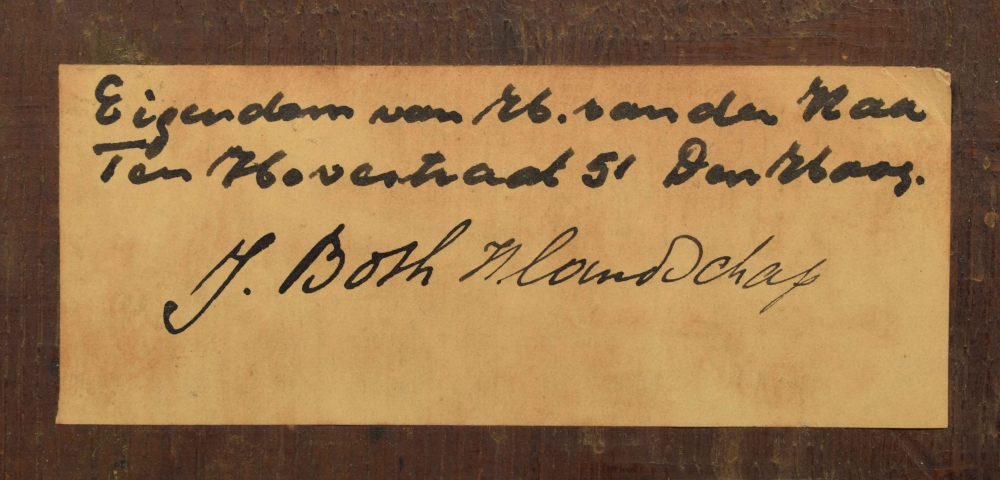 Eigendom van H. van der Haa
Ten Hovestraat 51 Den Haag.
J. Both landschap